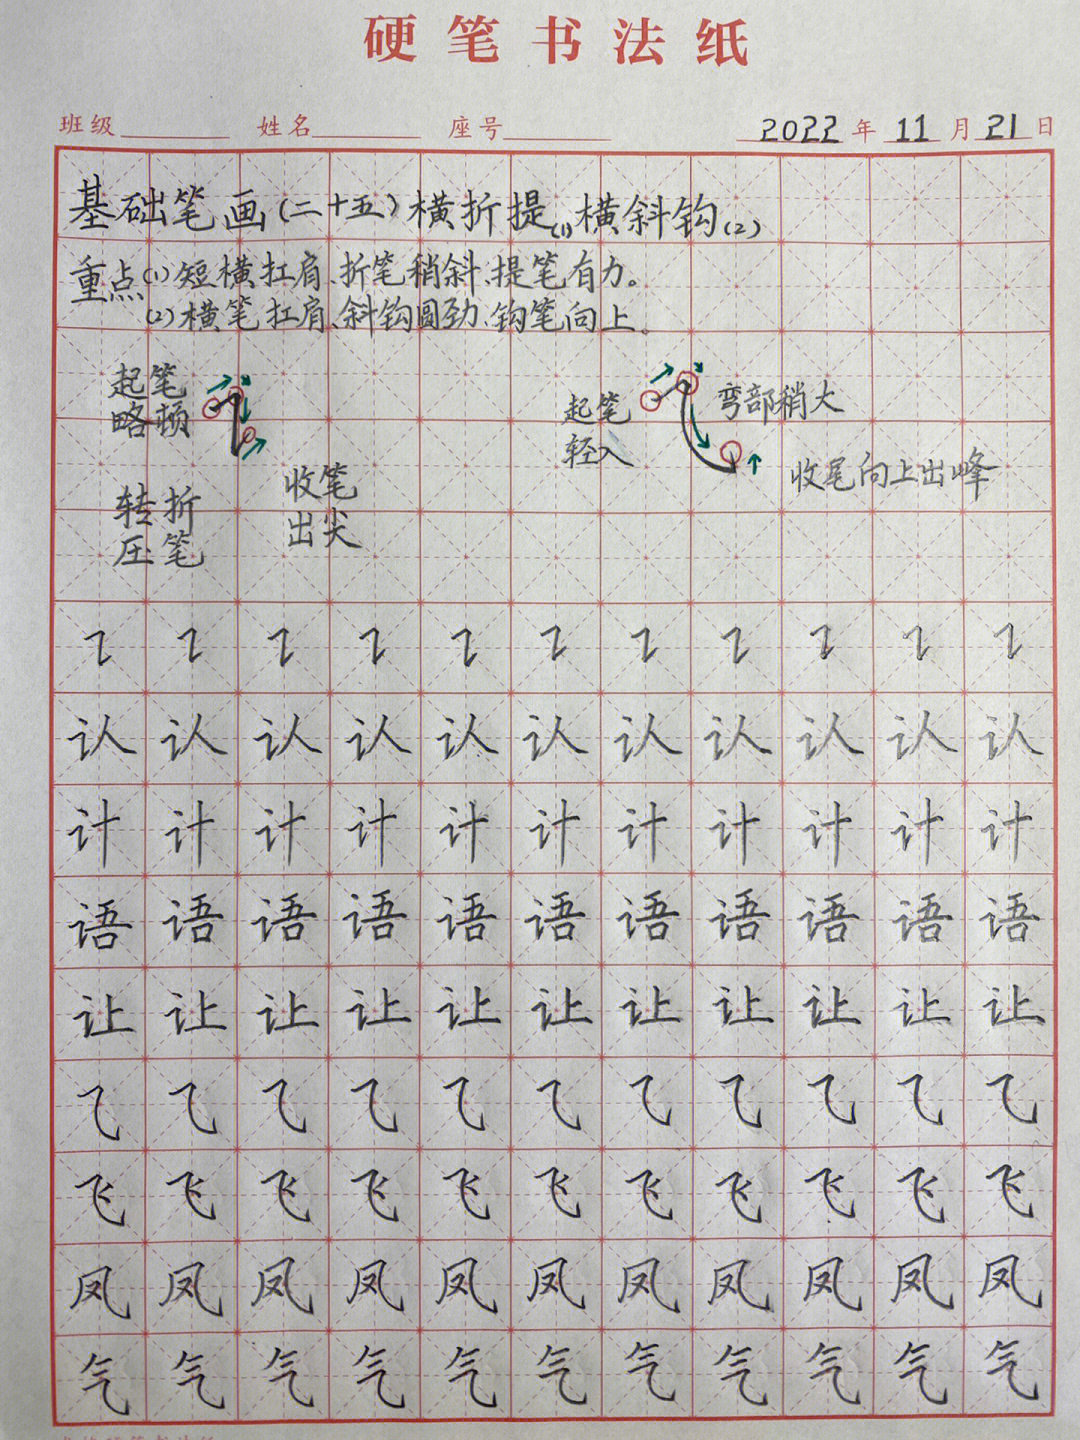 硬笔书法纸
班级 姓名 座号 2022年11月21日
基础笔画(二十五)横折提(1)横斜钩(2)
重点(1)短横扛肩、折笔稍斜、提笔有力。
(2)横笔扛肩、斜钩圆劲、钩笔向上。
起笔
略顿
转折
压笔
收笔
出尖
起笔
轻入
弯部稍大
收尾向上出峰
㇊㇊㇊㇊㇊㇊㇊㇊㇊㇊㇊
认认认认认认认认认认认
计计计计计计计计计计计
语语语语语语语语语语语
让让让让让让让让让让让
⺄⺄⺄⺄⺄⺄⺄⺄⺄⺄⺄
飞飞飞飞飞飞飞飞飞飞飞
凤凤凤凤凤凤凤凤凤凤凤
气气气气气气气气气气气